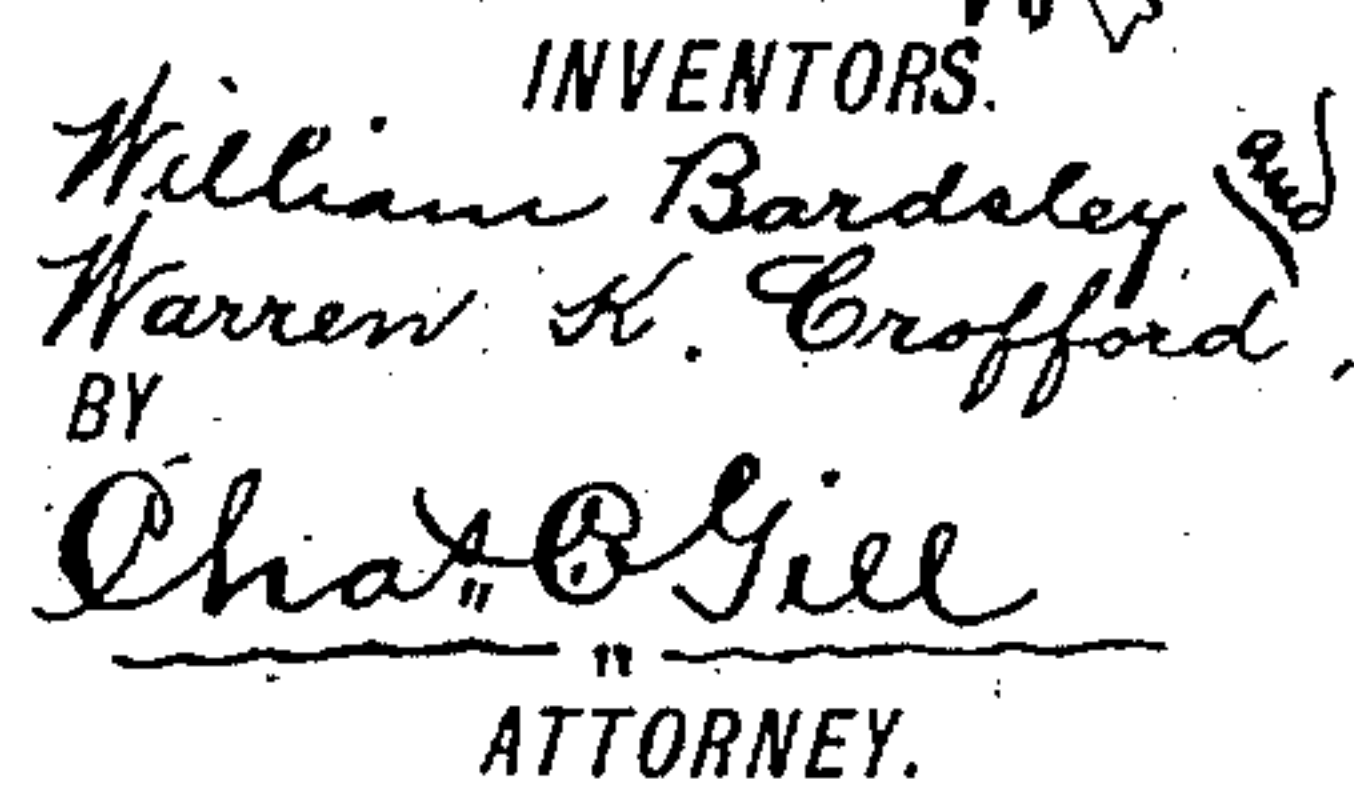 INVENTORS.
William Bardsley and
Warren K. Crofford,
BY
Chas. C. Gill
ATTORNEY.